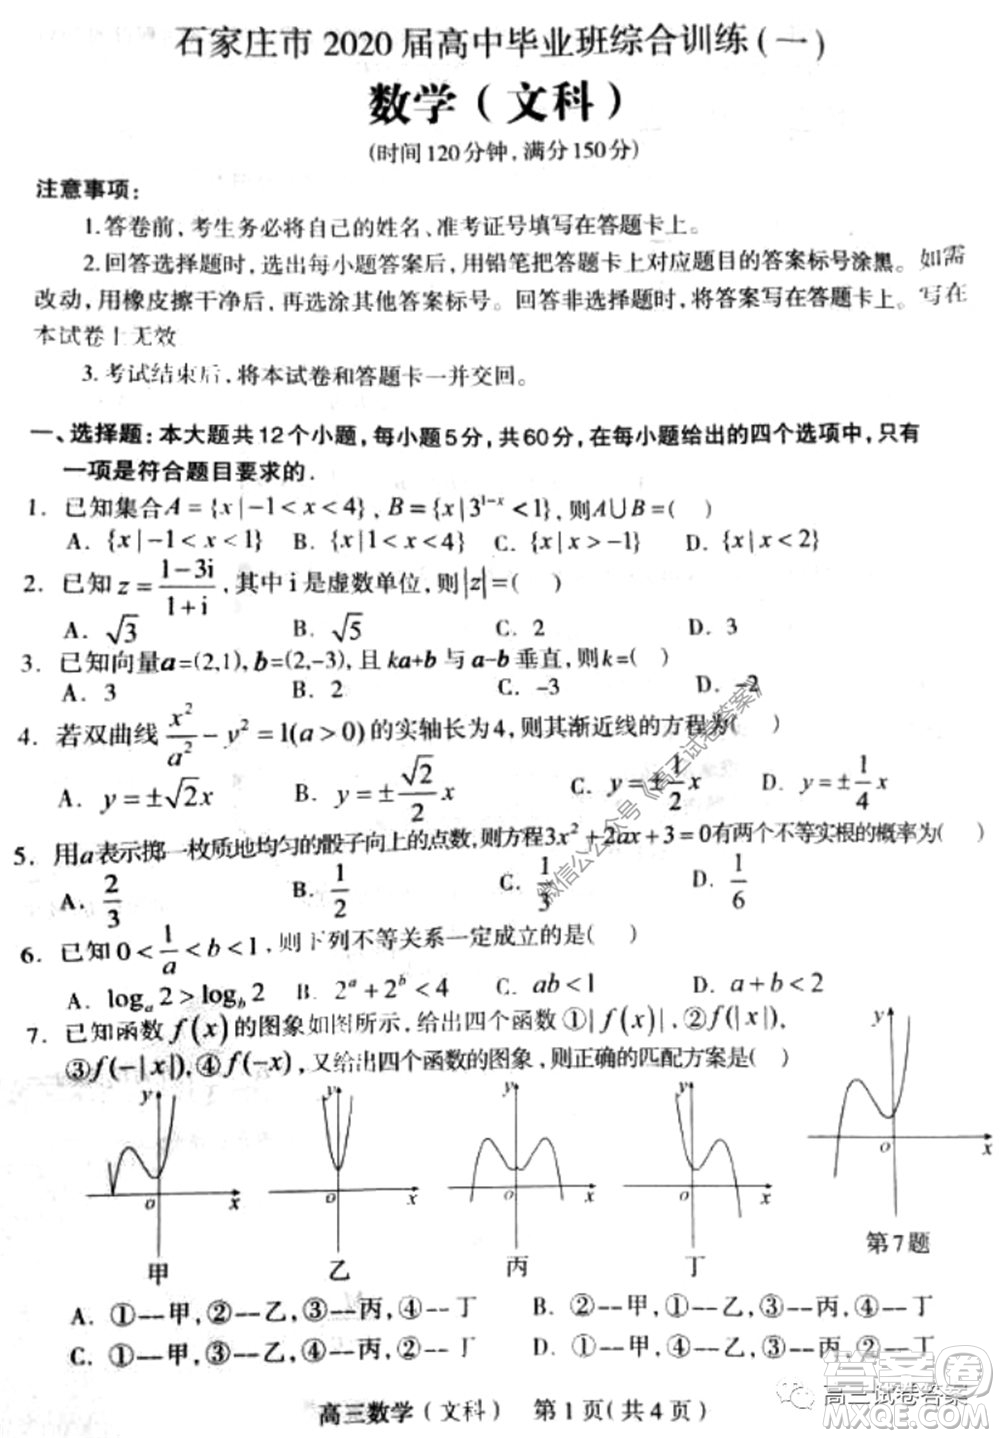 石家庄市 2020 届高中毕业班综合训练(一)
数学(文科)
(时间120分钟,满分150分)
注意事项:
1.答卷前,考生务必将自己的姓名、准考证号填写在答题卡上。
2.回答选择题时,选出每小题答案后,用铅笔把答题卡上对应题目的答案标号涂黑。如需
改动,用橡皮擦干净后,再选涂其他答案标号。回答非选择题时,将答案写在答题卡上。写在
本试卷上无效
3.考试结束后,将本试卷和答题卡一并交回。
一、选择题:本大题共12个小题,每小题5分,共60分,在每小题给出的四个选项中,只有
一项是符合题目要求的.
1. 已知集合A={x|-1<x<4},B={x|3^{1-x}<1},则A∪B=( )
A. {x|-1<x<1} B. {x|1<x<4} C. {x|x>-1} D. {x|x<2}
2. 已知 z=\frac{1-3i}{1+i},其中 i 是虚数单位,则|z|=( )
A. √3 B. √5 C. 2 D. 3
3. 已知向量a=(2,1),b=(2,-3),且 ka+b 与 a-b 垂直,则k=( )
A. 3 B. 2 C. -3 D. -2
4. 若双曲线 \frac{x²}{a²}-y²=1(a>0)的实轴长为4,则其渐近线的方程为( )
A. y=±√2x B. y=±\frac{√2}{2}x C. y=±\frac{1}{2}x D. y=±\frac{1}{4}x
5. 用a表示掷一枚质地均匀的骰子向上的点数,则方程3x²+2ax+3=0有两个不等实根的概率为( )
A. \frac{2}{3} B. \frac{1}{2} C. \frac{1}{3} D. \frac{1}{6}
6. 已知0<\frac{1}{a}<b<1,则下列不等关系一定成立的是( )
A. log_a 2>log_b 2 B. 2^a+2^b<4 C. ab<1 D. a+b>2
7. 已知函数 f(x)的图象如图所示,给出四个函数①|f(x)|,②f(|x|),
③f(-|x|),④f(-x),又给出四个函数的图象,则正确的匹配方案是( )
y
o
x
y
o
x
y
o
x
y
o
x
y
o
x
甲
乙
丙
丁
第7题
A. ①--甲,②--乙,③--丙,④--丁 B. ②--甲,①--乙,③--丙,④--丁
C. ①--甲,③--乙,④--丙,②--丁 D. ①--甲,④--乙,③--丙,②--丁
高三数学(文科) 第1页(共4页)
微信公众号《高三试卷答案》
高三试卷答案
答案圈
MXQE.COM